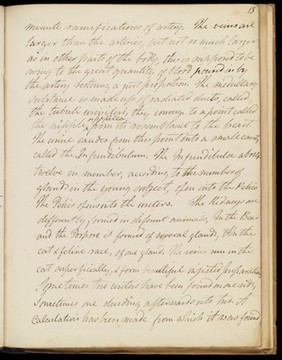 13
minute ramifications of artery. The veins are
larger than the arteries, but not so much larger
as in other parts of the body, this is supposed to be
owing to the great quantity of blood poured in by
the artery bearing a just proportion. The medullary
substance is made up of radiated ducts, called
the tubuli uriniferi, they converge to a point called
papilla
the nipple, from its resemblance to the breast.
The urine oozes from this point into a small cavity
called the Infundibulum. The Infundibula about
twelve in number, according to the number of
glands in the young subject, open into the Pelvis
The Pelvis opens into the ureters. The Kidneys are
differently formed in different animals. In the Bear
and the Porpoise is formed of several glands, in the
cat & feline race, of one gland. The veins run in the
cat superficially, & form beautiful injected preparation
Sometimes two ureters have been found on one side,
Sometimes one dividing afterwards into two. A
Calculation has been made from which it was found